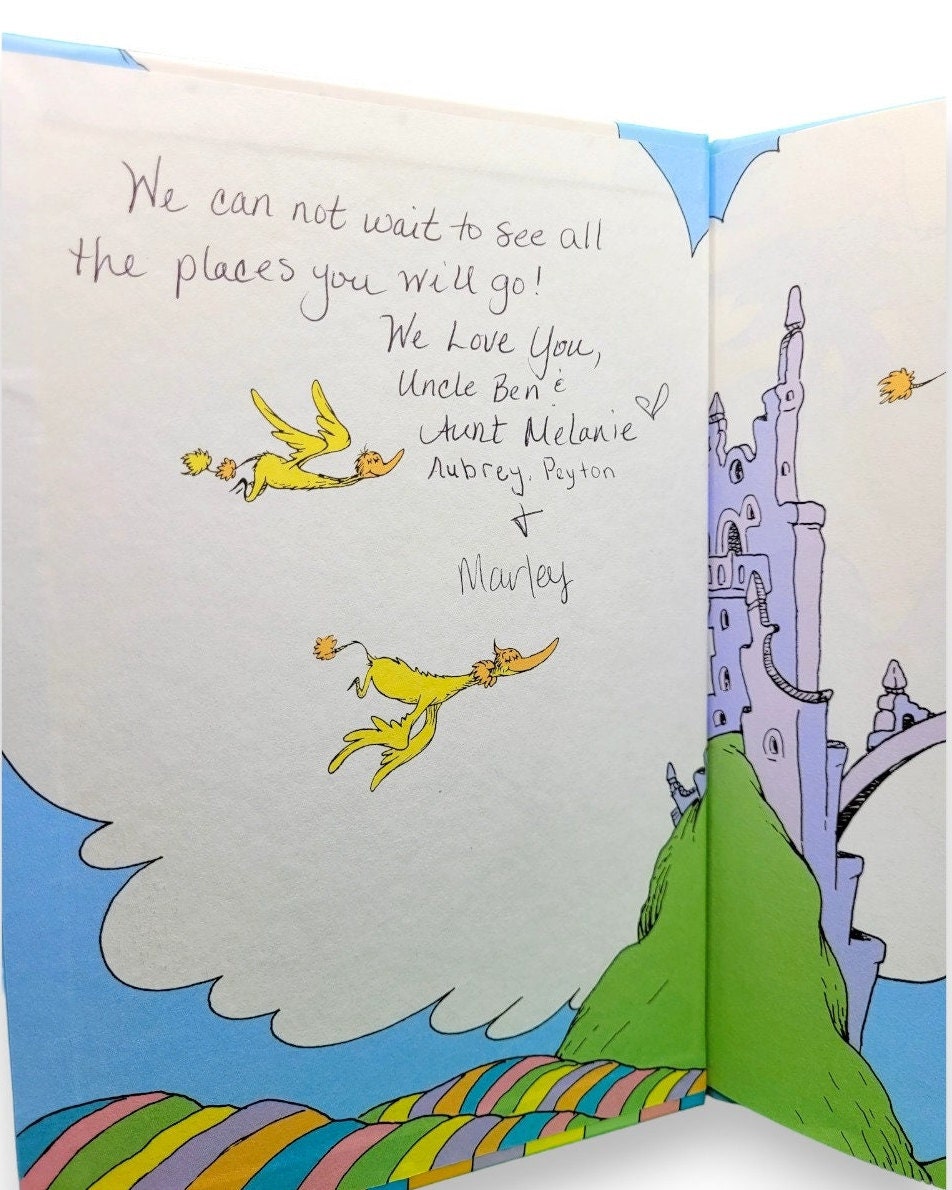 We can not wait to see all
the places you will go!
We Love You,
Uncle Ben &
Aunt Melanie
Aubrey, Peyton
+
Marley